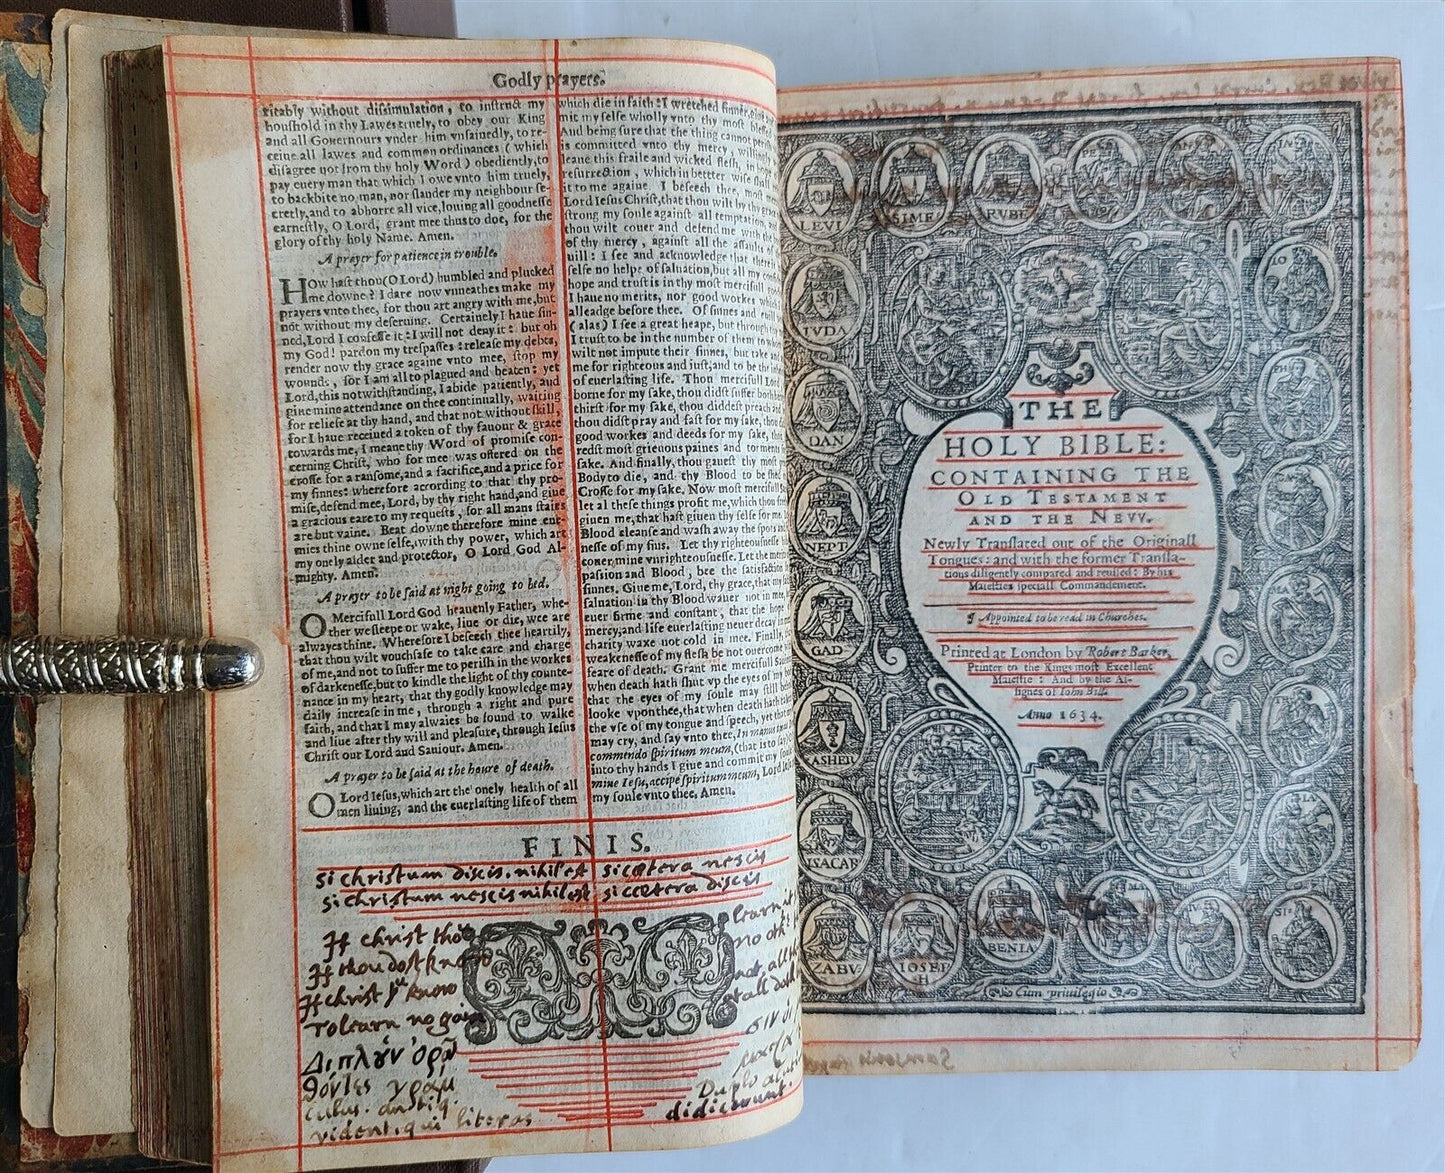 Godly prayers.
ritably without dissimulation, to instruct my
houshold in thy Lawes truely, to obey our King
and all Gouernours vnder him vnfainedly, to re-
ceiue all lawes and common ordinances (which
disagree not from thy holy Word) obediently, to
pay euery man that which I owe vnto him truely,
to backbite no man, nor slander my neighbour se-
cretly, and to abhorre all vice, louing all goodnesse
earnestly, O Lord, grant mee thus to doe, for the
glory of thy holy Name. Amen.
A prayer for patience in trouble.
HOw hast thou (O Lord) humbled and plucked
me downe? I dare now vnneathes make my
prayers vnto thee, for thou art angry with me, but
not without my deseruing. Certainely I haue sin-
ned, Lord I confesse it: I will not deny it: but oh
my God! pardon my trespasses: release my debts,
render now thy grace againe vnto mee, stop my
wounds, for I am all to plagued and beaten: yet
Lord, this notwithstanding, I abide patiently, and
giue mine attendance on thee continually, waiting
for reliefe at thy hand, and that not without skill,
for I haue receiued a token of thy fauour & grace
towards me, I meane thy Word of promise con-
cerning Christ, who for mee was offered on the
crosse for a ransome, and a sacrifice, and a price for
my sinnes: wherefore according to that thy pro-
mise, defend mee, Lord, by thy right hand, and giue
a gracious eare to my requests, for all mans staies
are but vaine. Beat downe therefore mine ene-
mies thine owne selfe, with thy power, which art
my onely aider and protector, O Lord God Al-
mighty. Amen.
A prayer to be said at night going to bed.
O Mercifull Lord God heauenly Father, whe-
ther we sleepe or wake, liue or die, wee are
alwayes thine. Wherefore I beseech thee heartily,
that thou wilt vouchsafe to take care and charge
of me, and not to suffer me to perish in the workes
of darkenesse, but to kindle the light of thy counte-
nance in my heart, that thy godly knowledge may
daily increase in me, through a right and pure
faith, and that I may alwaies be found to walke
and liue after thy will and pleasure, through Iesus
Christ our Lord and Sauiour. Amen.
A prayer to be said at the houre of death.
O Lord Iesus, which art the onely health of all
men liuing, and the euerlasting life of them
which die in faith: I wretched sinner, giue
mit my selfe wholly vnto thy most blessed
And being sure that the thing cannot perish
is committed vnto thy mercy, willingly
leaue this fraile and wicked flesh, in hope
resurrection, which in better wise shall
it to me againe. I beseech thee, most
Lord Iesus Christ, that thou wilt by thy
strong my soule against all temptation,
thou wilt couer and defend me with
of thy mercy, against all the assaults of
uill: I see and acknowledge that there
selfe no helpe of saluation, but all my
hope and trust is in thy most mercifull
I haue no merits, nor good workes which
alleadge before thee. Of sinnes and euill
(alas) I see a great heape, but through
I trust to be in the number of them to
wilt not impute their sinnes, but take and
me for righteous and just, and to be the
of euerlasting life. Thou mercifull Lord
borne for my sake, thou didst suffer both
thirst for my sake, thou diddest preach and
thou didst pray and fast for my sake, thou
good workes and deeds for my sake, thou
redst most grieuous paines and torments
sake. And finally, thou gauest thy most
Body to die, and thy Blood to be shed
Crosse for my sake. Now most mercifull
let al these things profit me, which thou
giuen me, that hast giuen thy selfe for me.
Blood cleanse and wash away the spots and
nesse of my sins. Let thy righteousnesse
couer mine vnrighteousnesse. Let the merits
passion and Blood, bee the satisfaction
sinnes. Giue me, Lord, thy grace, that my
saluation in thy Blood wauer not in me,
euer firme and constant, that the hope
mercy, and life euerlasting neuer decay in
charity waxe not cold in mee. Finally,
weakenesse of my flesh be not ouercome
feare of death. Grant me mercifull
when death hath shut vp the eyes of my
that the eyes of my soule may still
looke vpon thee, that when death hath
the vse of my tongue and speech, yet
may cry, and say vnto thee, In manus
commendo spiritum meum, (that is to say)
into thy hands I giue and commit my
mine Iesu, accipe spiritum meum, Lord
my soule vnto thee. Amen.
FINIS.
si christum discis. nihil est si cætera nescis
si christum nescis nihil est si cætera discis
If christ thou
If thou dost know
If christ yu know
To learn no gain
learn it
no oth
not, all th
Διπλοῦν ὁρῶ
vident. qui literas
Duplo
didicerunt.
LEVI
SIME
RVBE
PE
AN
IVDA
IO
DAN
PH
NEPT
GAD
MA
ASHER
ISACAR
ZABV
IOSEP
H
BENIA
MA
IVS
SI
THE
HOLY BIBLE:
CONTAINING THE
OLD TESTAMENT
AND THE NEVV.
Newly Translated out of the Originall
Tongues: and with the former Transla-
tions diligently compared and reuised: By his
Maiesties speciall Commandement.
¶ Appointed to be read in Churches.
Printed at London by Robert Barker,
Printer to the Kings most Excellent
Maiestie: And by the As-
signes of Iohn Bill.
Anno 1634.
Cum privilegio